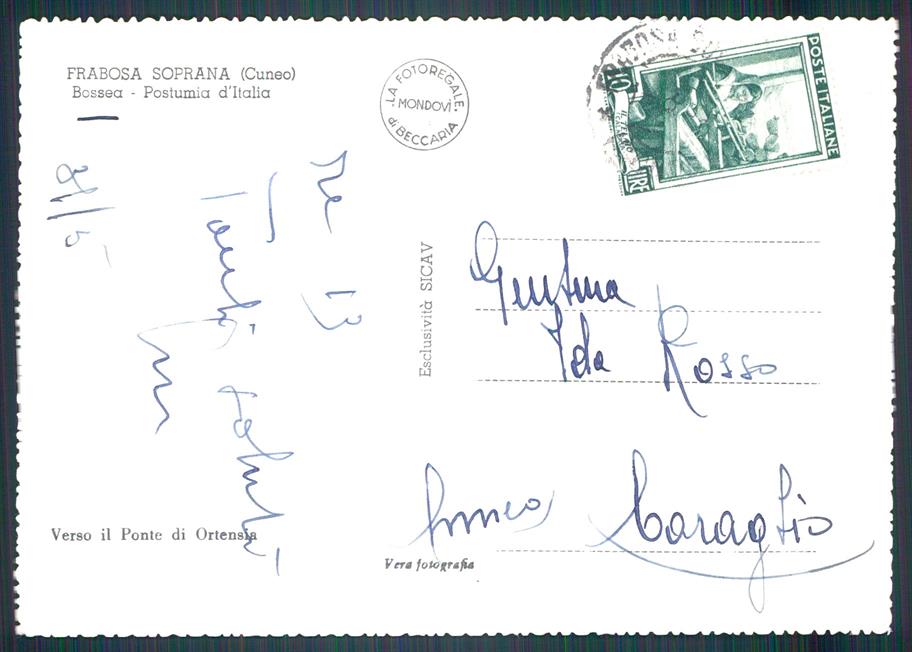 FRABOSA SOPRANA (Cuneo)
Bossea - Postumia d'Italia
LA FOTOREGALE
MONDOVÌ
di BECCARIA
FRABOSA
POSTE ITALIANE
10
LIRE
Tanti saluti
Esclusività SICAV
Ida Rosso
Caraglio
Verso il Ponte di Ortensia
Vera fotografia